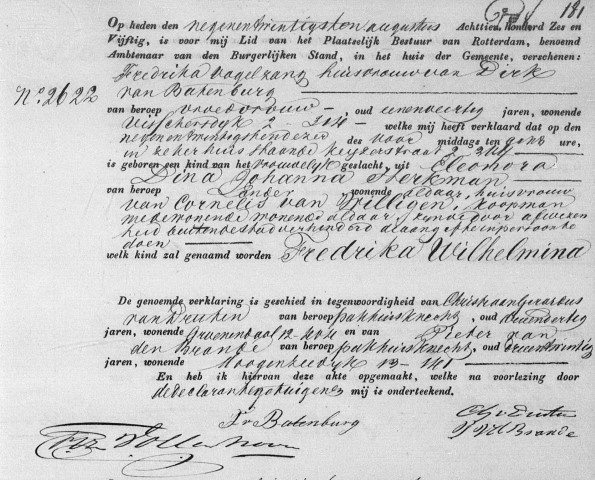 181
Op heden den negenentwintigsten augustus Achttien Honderd Zes en
Vijftig, is voor mij Lid van het Plaatselijk Bestuur van Rotterdam, benoemd
Ambtenaar van den Burgerlijken Stand, in het huis der Gemeente, verschenen:
Fredrika Vogelzang huisvrouw van Dirk
No. 2622
van Batenburg
van beroep vroedvrouw oud eenenveertig jaren, wonende
Visschersdyk 2 - 304 - welke mij heeft verklaard dat op den
negenentwintigsten dezer des voor middags ten ure,
in
is geboren een kind van het vrouwelyk geslacht, uit Eleonora
Dina Johanna Herkman
van beroep zonder wonende aldaar, huisvrouw
van Cornelis van Willigen, koopman
medewonende wonende aldaar, zynde door afwezen
heid buiten de stad verhinderd de aangifte in persoon te
doen
welk kind zal genaamd worden Fredrika Wilhelmina
De genoemde verklaring is geschied in tegenwoordigheid van Christiaan Gerardus
van Druten van beroep pakhuisknecht, oud
jaren, wonende Groenendaal 12 en van Pieter van
den Brande van beroep pakhuisknecht, oud
jaren, wonende Hoogenzeedyk 13
En heb ik hiervan deze akte opgemaakt, welke na voorlezing door
de declarante getuigen mij is onderteekend.
Fr Batenburg